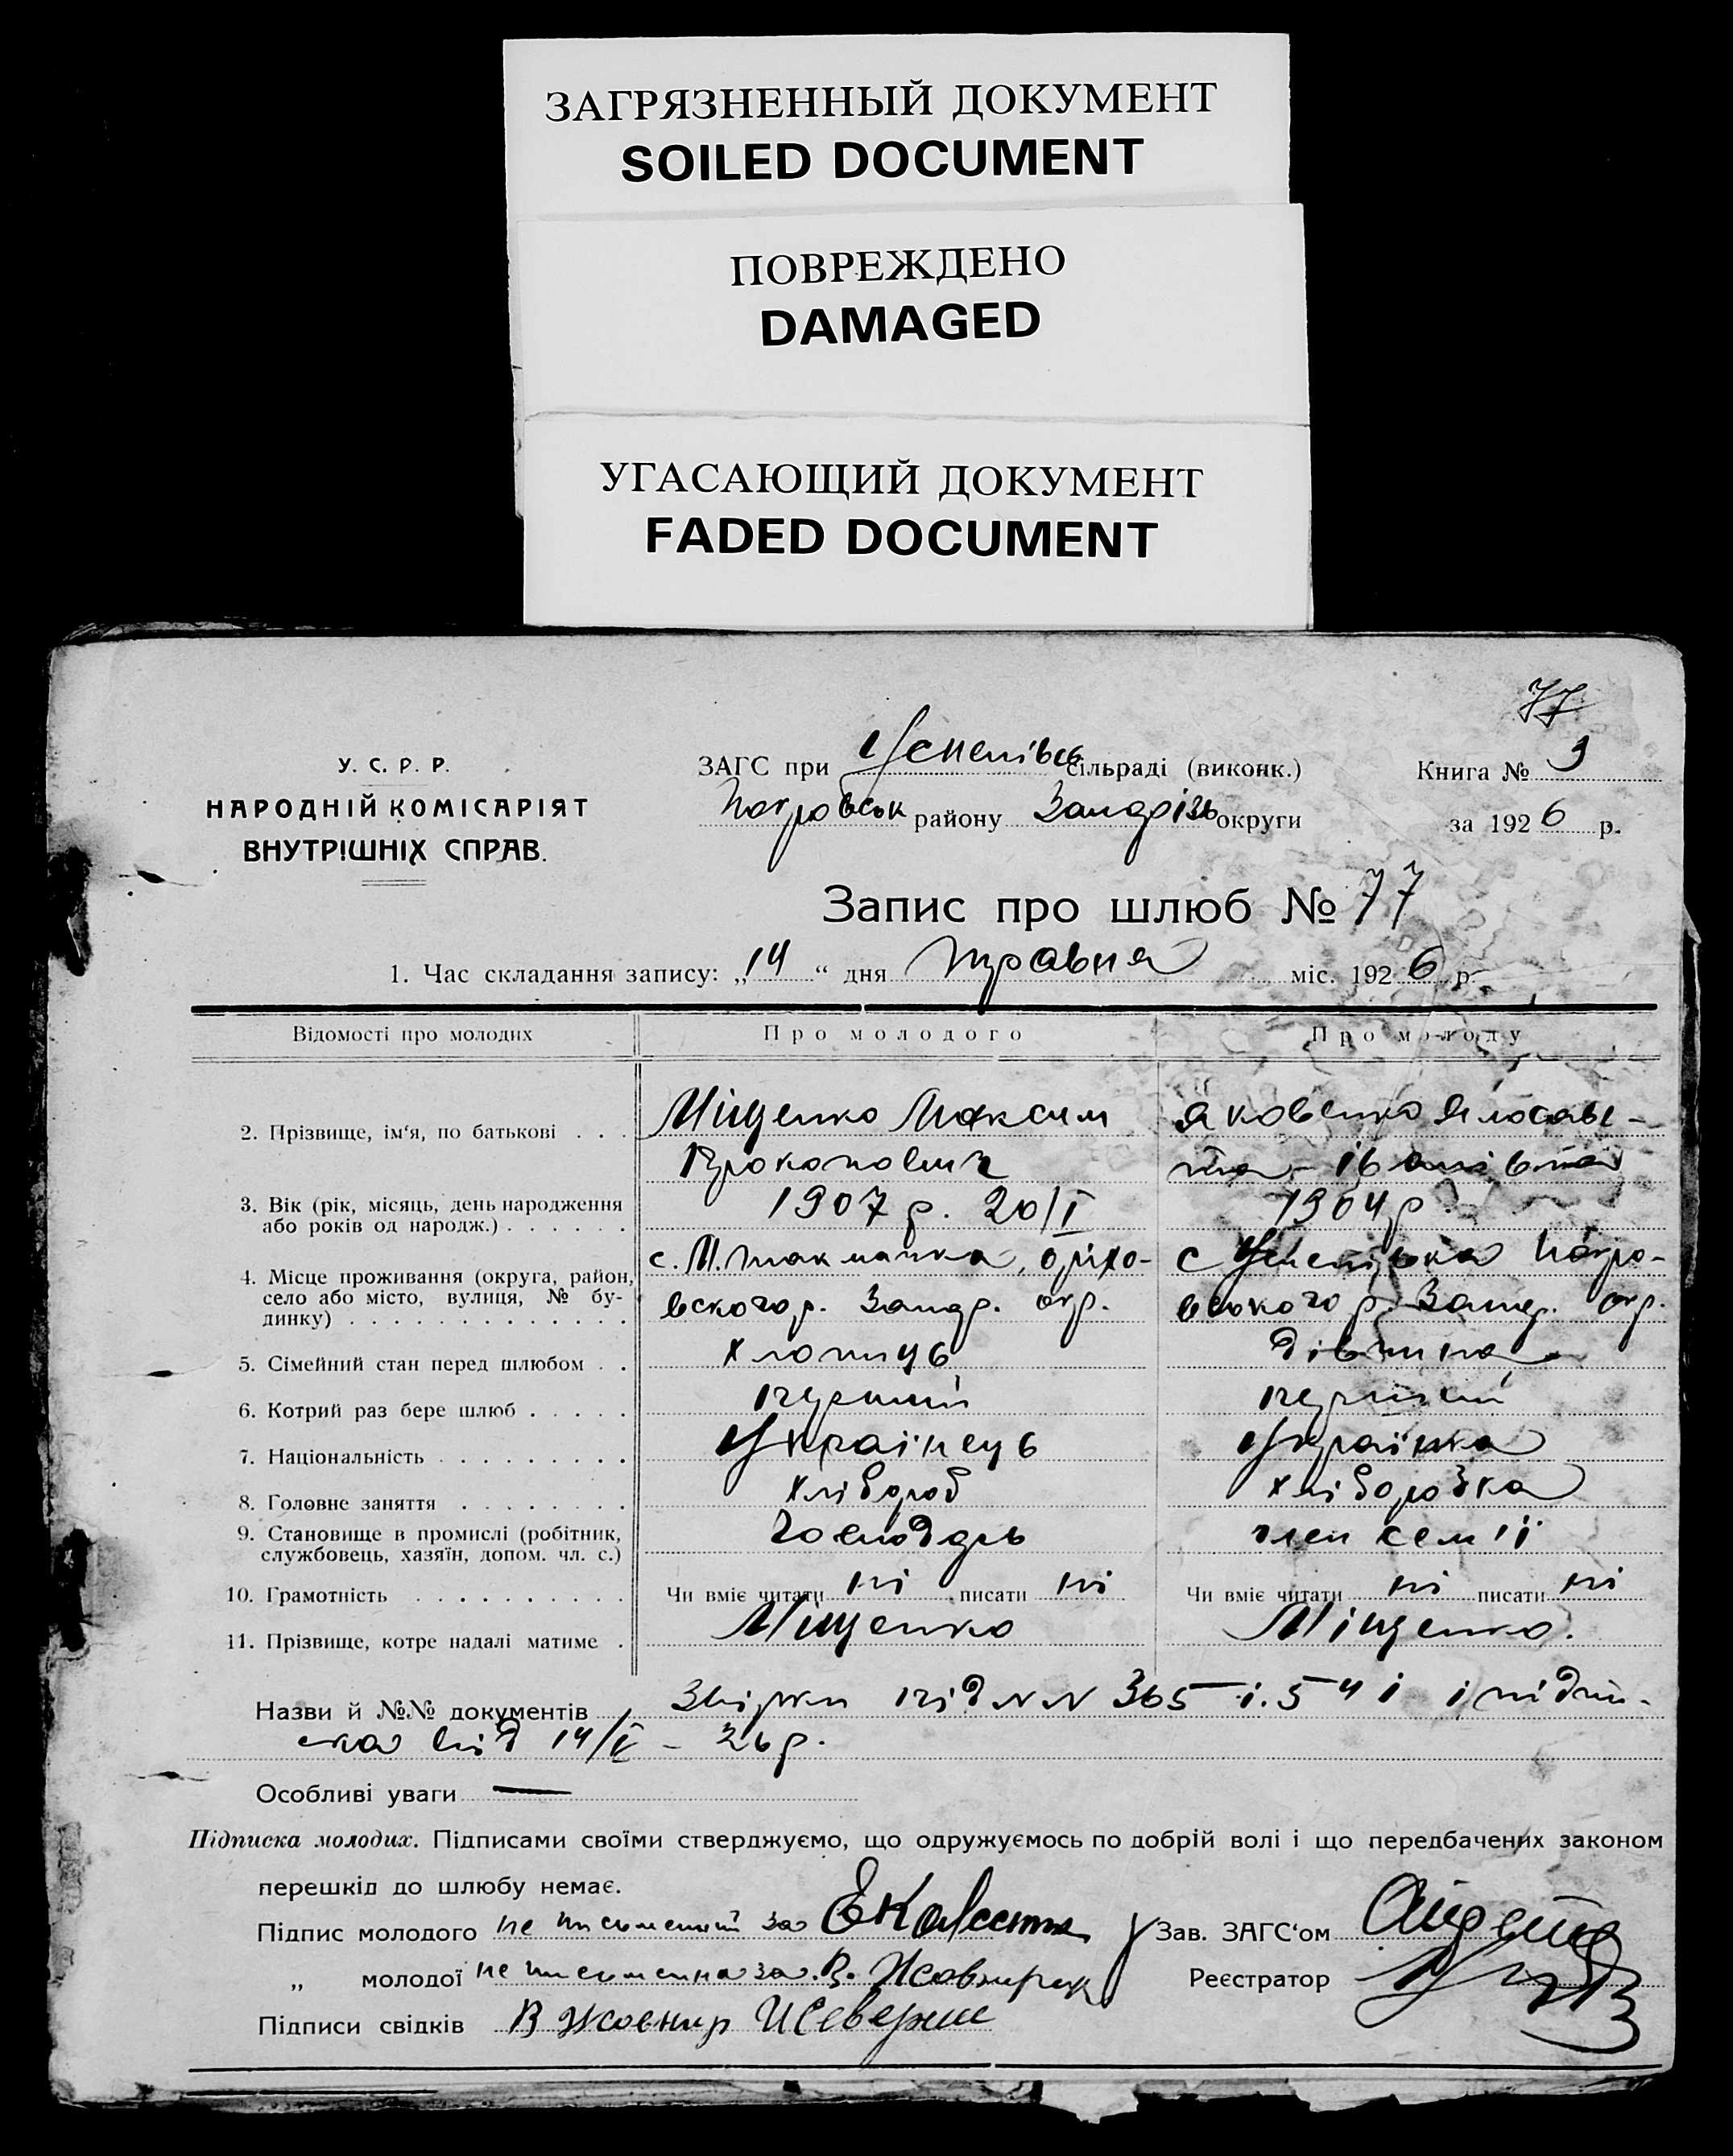 ЗАГРЯЗНЕННЫЙ ДОКУМЕНТ
SOILED DOCUMENT
ПОВРЕЖДЕНО
DAMAGED
УГАСАЮЩИЙ ДОКУМЕНТ
FADED DOCUMENT
77
У. С. Р. Р.
НАРОДНІЙ КОМІСАРІЯТ
ВНУТРІШНІХ СПРАВ.
ЗАГС при Успенівськ сільраді (виконк.)
Покровськ району Запорізь округи
Книга № 3
за 1926 р.
Запис про шлюб № 77
1. Час складання запису: „14“ дня травня міс. 1926 р.
Відомості про молодих Про молодого Про молоду
2. Прізвище, ім'я, по батькові . . . Міщенко Максим Яковенко Єлосаве-
Прокопович та
3. Вік (рік, місяць, день народження 1907 р. 20/I 1904 р.
або років од народж.) . . . . . .
4. Місце проживання (округа, район, с. М. Токмачка, Оріхо- с Успенівка Покро-
село або місто, вулиця, № бу- вского р. Запор. окр. вського р. Запор. окр.
динку) . . . . . . . . . . . . .
5. Сімейний стан перед шлюбом . . хлопиць дівчина
6. Котрий раз бере шлюб . . . . . перший перший
7. Національність . . . . . . . . . Українець Українка
8. Головне заняття . . . . . . . . хлібороб хліборобка
9. Становище в промислі (робітник, господарь член сем'ії
службовець, хазяїн, допом. чл. с.)
10. Грамотність . . . . . . . . . . Чи вміє читати ні писати ні Чи вміє читати ні писати ні
11. Прізвище, котре надалі матиме . Міщенко Міщенко.
Назви й №№ документів під NN 365 і 541 і підпи-
ска від 14/V – 26 р.
Особливі уваги —
Підписка молодих. Підписами своїми стверджуємо, що одружуємось по добрій волі і що передбачених законом
перешкід до шлюбу немає.
Підпис молодого не письменний за
Зав. ЗАГС'ом
„ молодої не письменна за В. Жовнир
Реєстратор
Підписи свідків В Жовнир